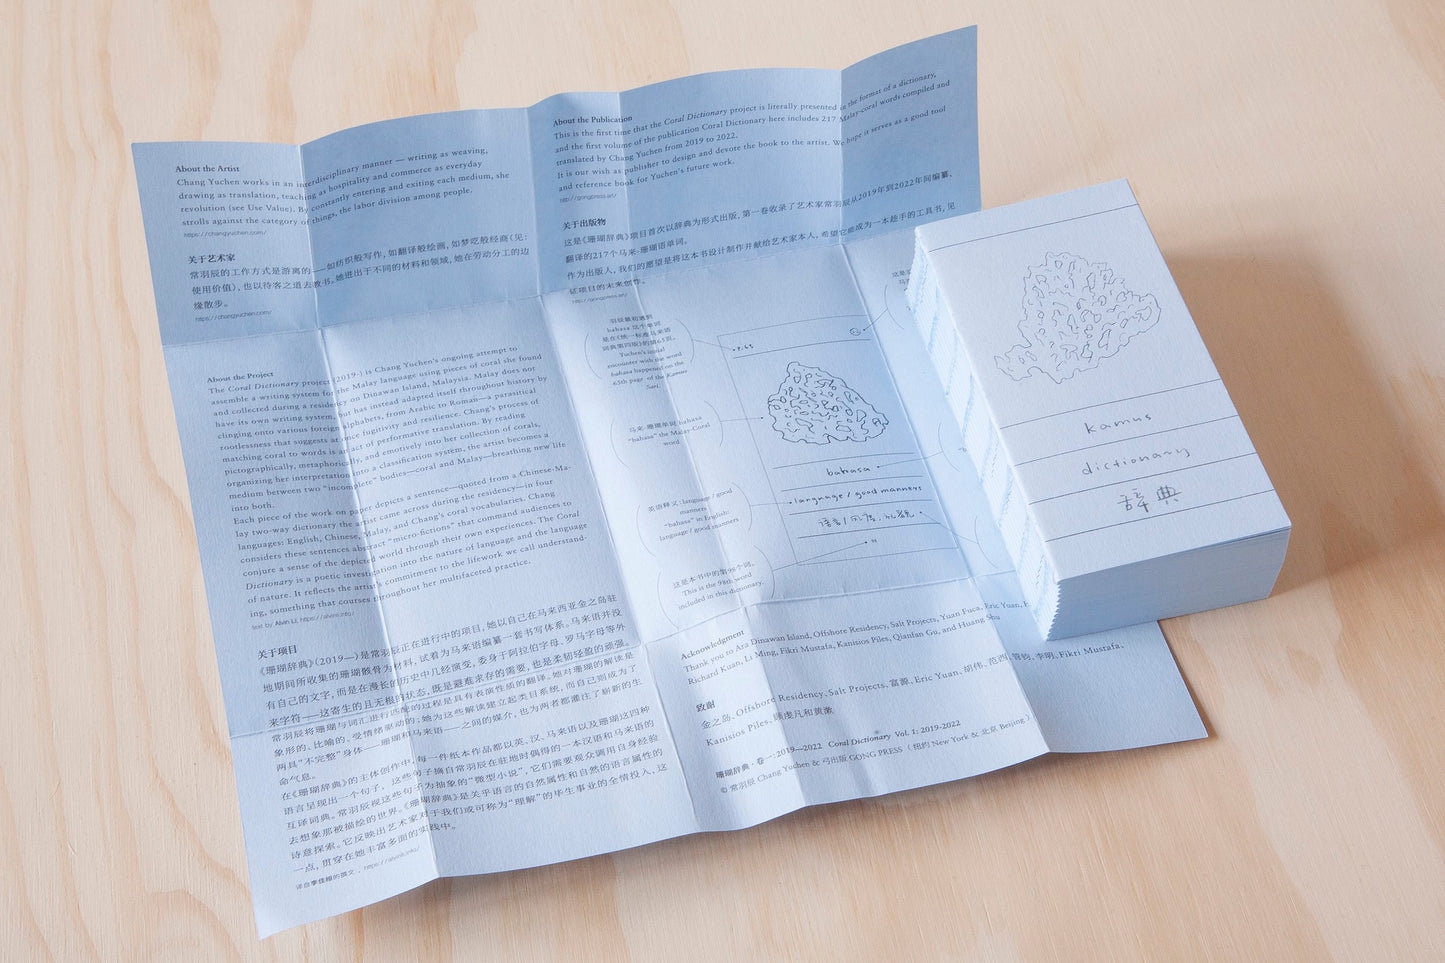 About the Artist
Chang Yuchen works in an interdisciplinary manner — writing as weaving,
drawing as translation, teaching as hospitality and commerce as everyday
revolution (see Use Value). By constantly entering and exiting each medium, she
strolls against the category of things, the labor division among people.
https://changyuchen.com/
关于艺术家
常羽辰的工作方式是游离的——如纺织般写作，如翻译般绘画，如梦呓般经商（见：
使用价值），也以待客之道去教书。她进出于不同的材料和领域，她在劳动分工的边
缘散步。
https://changyuchen.com/
About the Publication
This is the first time that the Coral Dictionary project is literally presented in the format of a dictionary,
and the first volume of the publication Coral Dictionary here includes 217 Malay-coral words compiled and
translated by Chang Yuchen from 2019 to 2022.
It is our wish as publisher to design and devote the book to the artist. We hope it serves as a good tool
and reference book for Yuchen's future work.
http://gongpress.art/
关于出版物
这是《珊瑚辞典》项目首次以辞典为形式出版，第一卷收录了艺术家常羽辰从2019年到2022年间编纂、
翻译的217个马来-珊瑚语单词。
作为出版人，我们的愿望是将这本书设计制作并献给艺术家本人，希望它能成为一本趁手的工具书，见
证项目的未来创作。
http://gongpress.art/
About the Project
The Coral Dictionary project (2019-) is Chang Yuchen's ongoing attempt to
assemble a writing system for the Malay language using pieces of coral she found
and collected during a residency on Dinawan Island, Malaysia. Malay does not
have its own writing system, but has instead adapted itself throughout history by
clinging onto various foreign alphabets, from Arabic to Roman—a parasitical
rootlessness that suggests at once fugitivity and resilience. Chang's process of
matching coral to words is an act of performative translation. By reading
pictographically, metaphorically, and emotively into her collection of corals,
organizing her interpretation into a classification system, the artist becomes a
medium between two "incomplete" bodies—coral and Malay—breathing new life
into both.
Each piece of the work on paper depicts a sentence—quoted from a Chinese-Ma-
lay two-way dictionary the artist came across during the residency—in four
languages: English, Chinese, Malay, and Chang's coral vocabularies. Chang
considers these sentences abstract "micro-fictions" that command audiences to
conjure a sense of the depicted world through their own experiences. The Coral
Dictionary is a poetic investigation into the nature of language and the language
of nature. It reflects the artist's commitment to the lifework we call understand-
ing, something that courses throughout her multifaceted practice.
text by Alvin Li, https://alvinli.info/
关于项目
《珊瑚辞典》（2019—）是常羽辰正在进行中的项目，她以自己在马来西亚金之岛驻
地期间所收集的珊瑚骸骨为材料，试着为马来语编纂一套书写体系。马来语并没
有自己的文字，而是在漫长的历史中几经演变，委身于阿拉伯字母、罗马字母等外
来字符——这寄生的且无根的状态，既是避难求存的需要，也是柔韧轻盈的顽强。
常羽辰将珊瑚与词汇进行匹配的过程是具有表演性质的翻译。她对珊瑚的解读是
象形的、比喻的、受情绪驱动的；她为这些解读建立起类目系统，而自己则成为了
两具“不完整”身体——珊瑚和马来语——之间的媒介，也为两者都灌注了崭新的生
命气息。
在《珊瑚辞典》的主体创作中，每一件纸本作品都以英、汉、马来语以及珊瑚这四种
语言呈现出一个句子，这些句子摘自常羽辰在驻地时偶得的一本汉语和马来语的
互译词典。常羽辰视这些句子为抽象的“微型小说”，它们需要观众调用自身经验
去想象那被描绘的世界。《珊瑚辞典》是关乎语言的自然属性和自然的语言属性的
诗意探索。它反映出艺术家对于我们或可称为“理解”的毕生事业的全情投入，这
一点，贯穿在她丰富多面的实践中。
译自李佳桓的撰文，https://alvinli.info/
羽辰最初遇到
bahasa 这个单词
是在《统一标准马来语
词典第四版》的第65页。
Yuchen's initial
encounter with the word
bahasa happened on the
65th page of the Kamus
Sari.
马来-珊瑚单词 bahasa
"bahasa" the Malay-Coral
word
英语释义：language / good
manners
"bahasa" in English:
language / good manners
这是本书中的第98个词。
This is the 98th word
included in this dictionary.
P.65
bahasa
language / good manners
语言/风度、礼貌
Acknowledgment
Thank you to Ara Dinawan Island, Offshore Residency, Salt Projects, Yuan Fuca, Eric Yuan,
Richard Kuan, Li Ming, Fikri Mustafa, Kanisios Piles, Qianfan Gu, and Huang Shu
致谢
金之岛、Offshore Residency、Salt Projects、富源、Eric Yuan、胡伟、范西、管钧、李明、Fikri Mustafa、
Kanisios Piles、顾虔凡和黄漱
珊瑚辞典·卷一：2019—2022 Coral Dictionary Vol. 1: 2019-2022
© 常羽辰 Chang Yuchen & 弓出版 GONG PRESS（纽约 New York & 北京 Beijing）
kamus
dictionary
辞典